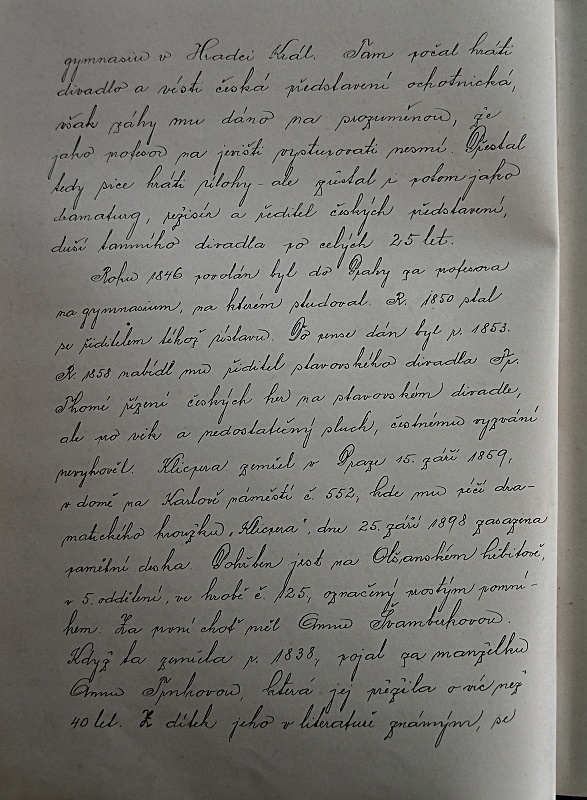 gymnasiu v Hradci Král. Tam počal hráti
divadlo a vésti česká představení ochotnická,
však záhy mu dáno na srozuměnou, že
jako profesor na jevišti vystupovati nesmí. Přestal
tedy sice hráti úlohy - ale zůstal i potom jako
dramaturg, režisér a ředitel českých představení,
duší tamního divadla po celých 25 let.
Roku 1846 povolán byl do Prahy za profesora
na gymnasium, na kterém studoval. R. 1850 stal
se ředitelem téhož ústavu. Do pense dán byl r. 1853.
R. 1858 nabídl mu ředitel stavovského divadla Fr.
Thomé řízení českých her na stavovském divadle,
ale pro věk a nedostatečný sluch, čestnému vyzvání
nevyhověl. Klicpera zemřel v Praze 15. září 1859,
v domě na Karlově náměstí č. 552, kde mu péčí dra-
matického kroužku „Klicpera" dne 25. září 1898 zasazena
pamětní deska. Pohřben jest na Olšanském hřbitově,
v 5. oddělení, ve hrobě č. 125, označený prostým pomní-
kem. Za první choť měl Annu Švamberkovou.
Když ta zemřela r. 1838, pojal za manželku
Annu Trnkovou, která jej přežila o víc než
40 let. Z dítek jeho v literatuře známým, se